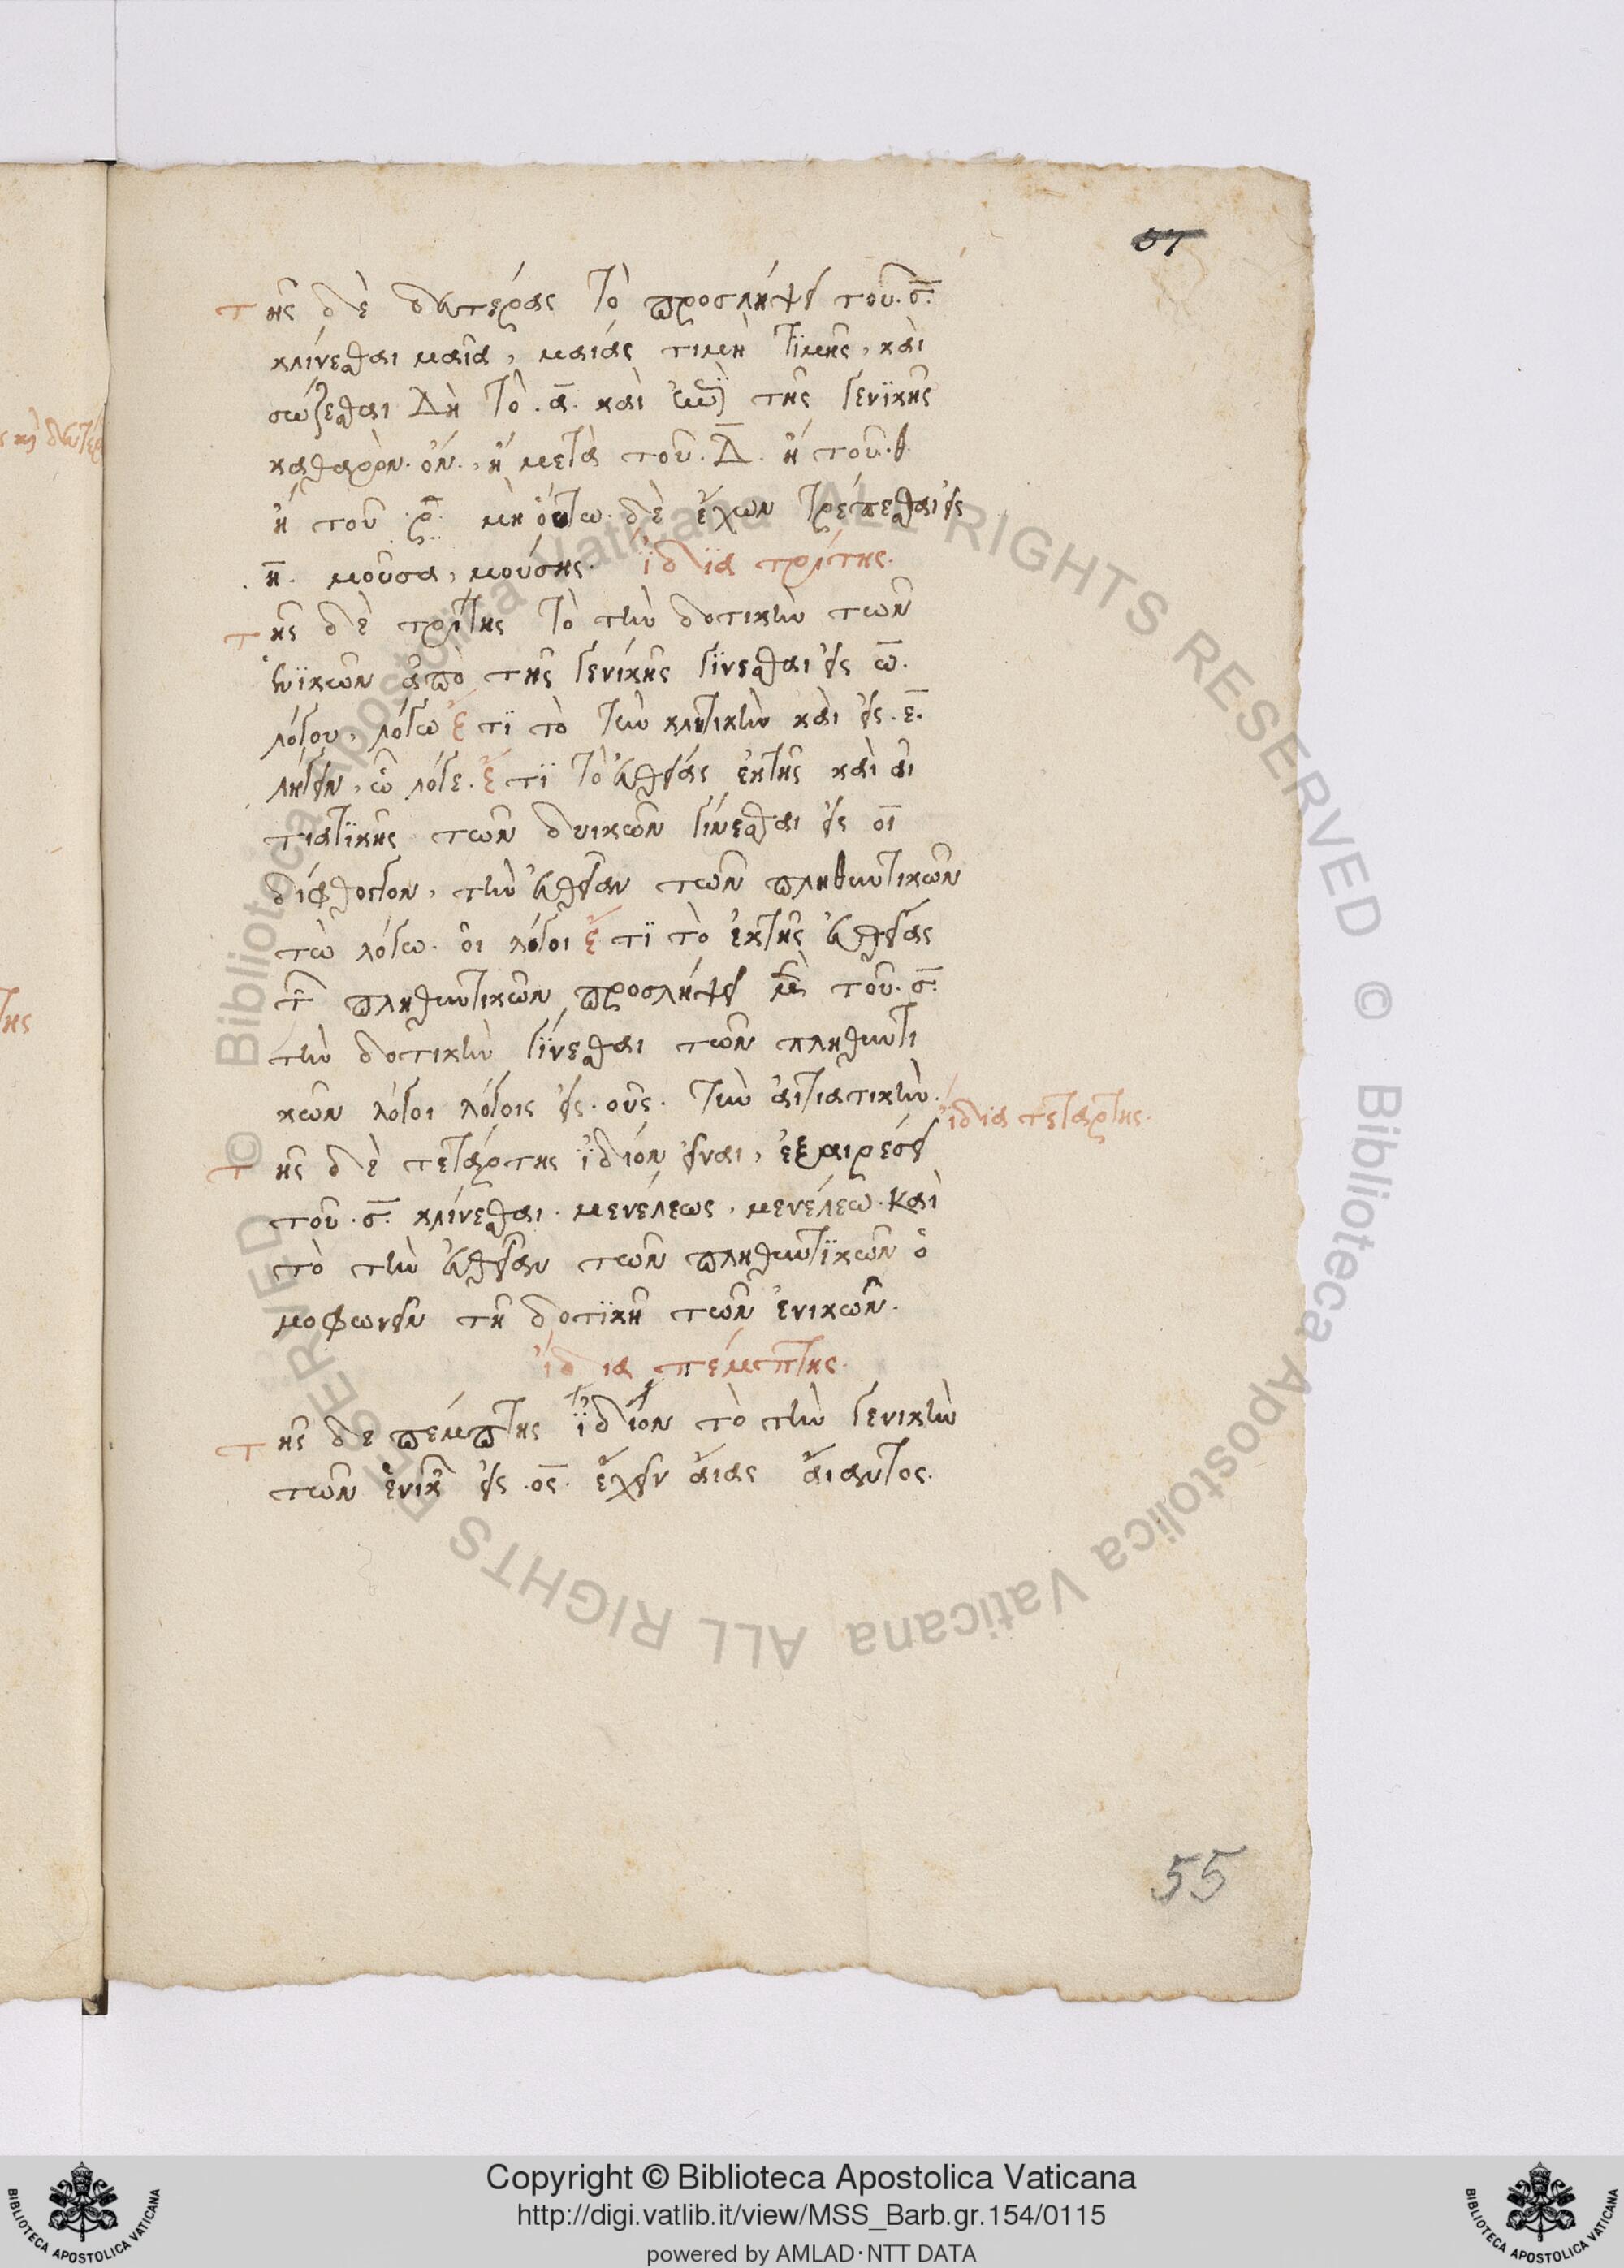 57
τῆς δὲ δευτέρας τὸ προσλήψει τοῦ . σ̅ .
κλίνεσθαι μαῖα, μαιάς τιμὴ τϊμῆς, καὶ
σώζεσθαι Δὴ τὸ . α̅ . καὶ τῆς γενϊκῆς
καθαρὸν . ὂν . , ἢ μετὰ τοῦ . Δ̅ . ἢ τοῦ . θ
ἢ τοῦ . ρ̅ . μὴ οὕτω . δὲ ἔχων τρέπεσθαι εἰς
η̅ . μοῦσα, μούσης . ἴδϊα τρίτης .
τῆς δὲ τρίτης τὸ τὴν δοτικὴν τῶν
ἑνϊκῶν ἀπὸ τῆς γενικῆς γίνεσθαι εἰς ω̅ .
λόγου, λόγω ἔτϊ τὸ τὴν κλητικὴν καὶ εἰς . ε̅ .
λήγειν, ὦ λόγε . ἔτϊ τὸ εὐθείας ἐκτῆς καὶ αἰ
τιατϊκῆς τῶν δυικῶν γίνεσθαι εἰς οι̅
δίφθογγον, τὴν εὐθεῖαν τῶν πληθυντικῶν
τὼ λόγω . οἱ λόγοι ἔτϊ τὸ ἐκτῆς εὐθείας
τῶν πληθυντικῶν προσλήψει μὲν τοῦ . σ̅ .
τὴν δοτικὴν γίνεσθαι τῶν πληθυντι
κῶν λόγοι λόγοις εἰς . ους . τὴν αἰτιατικὴν .
ἴδια τετάρτης .
τῆς δὲ τετάρτης ἴδιόν εἶναι, ἐξαιρέσει
τοῦ . σ̅ . κλίνεσθαι . μενέλεως, μενέλεω . καὶ
τὸ τὴν εὐθεῖαν τῶν πληθυντϊκῶν ὁ
μοφωνεῖν τῆ δοτϊκῆ τῶν ἑνικῶν .
ἴδια πέμπτης .
τῆς δε πέμπτης ἴδϊον τὸ τὴν γενικὴν
τῶν ἑνικ εἰς . ος . ἔχειν αἴας αἴαντος .
55
Copyright © Biblioteca Apostolica Vaticana
http://digi.vatlib.it/view/MSS_Barb.gr.154/0115
powered by AMLAD·NTT DATA